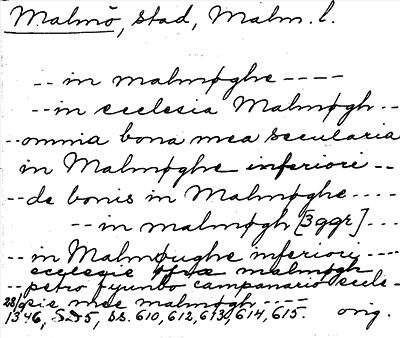 Malmö, stad, Malm. l.
-- in malmøghe ----
-- in ecclesia Malmøgh --
-- omnia bona mea secularia
in Malmøghe inferiori --
-- de bonis in Malmøghe ----
-- in malmøgh [3 ggr] ----
-- in Malmøughe inferiori ----
ecclesie malmøgh
-- petro fyunbo campanario eccle-
sie mee malmøgh ----
28/9 1346, SD5, ss. 610, 612, 613, 614, 615. orig.